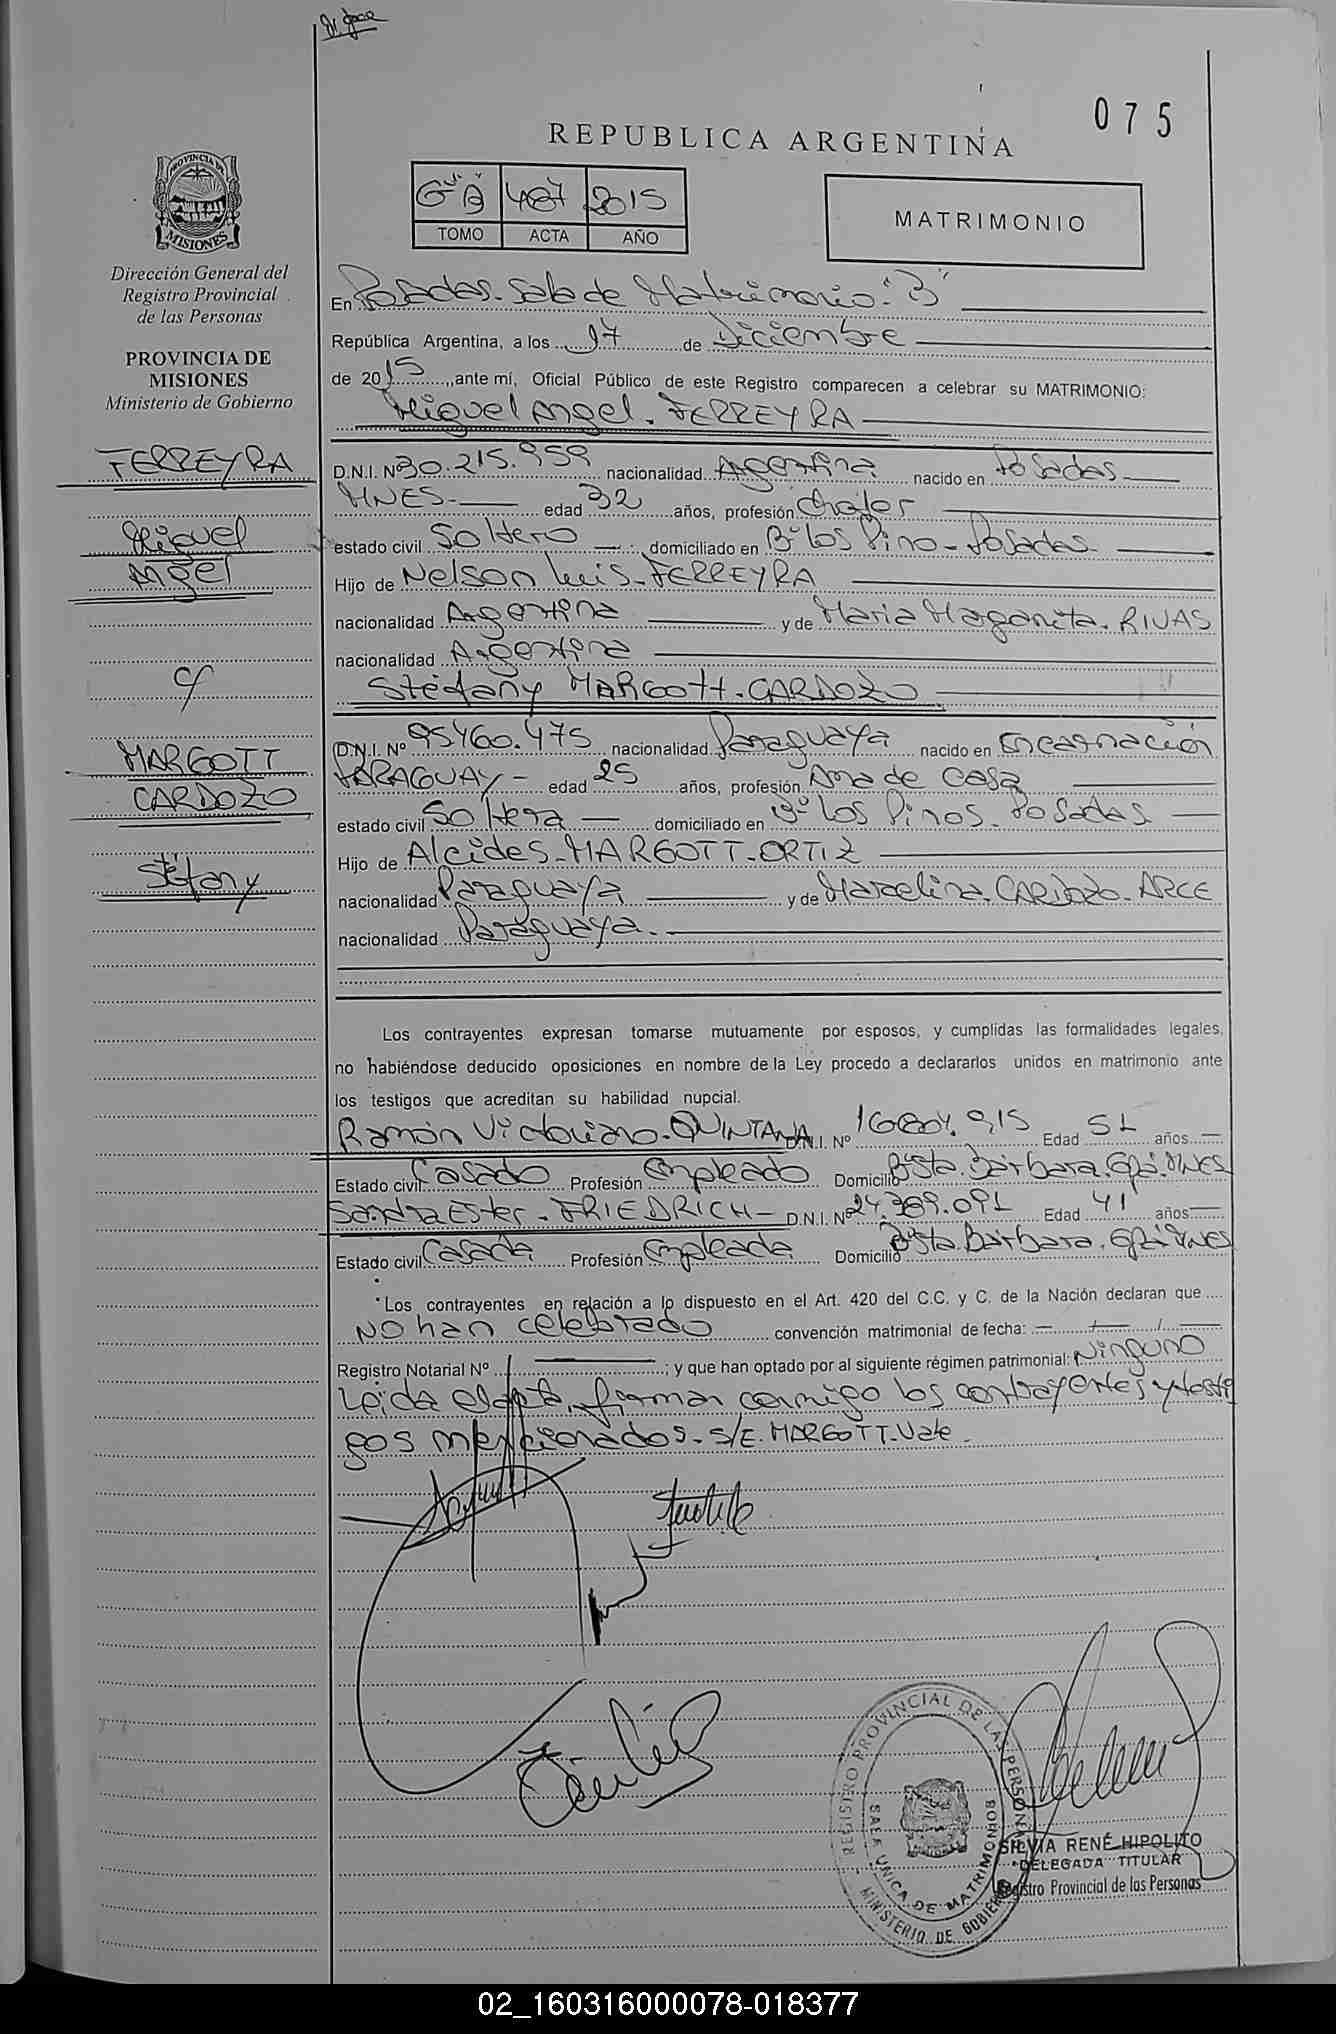 075
REPUBLICA ARGENTINA
2015
TOMO ACTA AÑO
MATRIMONIO
PROVINCIA DE MISIONES
Dirección General del
Registro Provincial
de las Personas
PROVINCIA DE
MISIONES
Ministerio de Gobierno
FERREYRA
Miguel
Angel
c/
MARGOTT
CARDOZO
Stéfany
En Posadas. Sala de Matrimonio "B"
República Argentina, a los 17 de Diciembre
de 2015, ante mí, Oficial Público de este Registro comparecen a celebrar su MATRIMONIO:
Miguel Angel. FERREYRA
D.N.I. Nº 30.215.959 nacionalidad Argentina nacido en Posadas
MNES. edad 32 años, profesión Chofer
estado civil Soltero domiciliado en Bº los Pino - Posadas
Hijo de Nelson Luis. FERREYRA
nacionalidad Argentina y de Maria Margarita. RIVAS
nacionalidad Argentina
Stéfany MARGOTT. CARDOZO
D.N.I. Nº 95460.475 nacionalidad Paraguaya nacido en Encarnación
PARAGUAY - edad 25 años, profesión Ama de casa
estado civil Soltera domiciliado en Bº Los Pinos. Posadas
Hijo de Alcides. MARGOTT. ORTIZ
nacionalidad Paraguaya y de Marcelina. CARDOZO. ARCE
nacionalidad Paraguaya.
Los contrayentes expresan tomarse mutuamente por esposos, y cumplidas las formalidades legales,
no habiéndose deducido oposiciones en nombre de la Ley procedo a declararlos unidos en matrimonio ante
los testigos que acreditan su habilidad nupcial.
Ramón Victoriano. QUINTANA D.N.I. Nº Edad 51 años
Estado civil Casado Profesión Empleado Domicilio Bº Sta. Bárbara. MNES
Sandra Ester. FRIEDRICH - D.N.I. Nº 24.369.091 Edad 41 años
Estado civil Casada Profesión Empleada Domicilio Bº Sta. Bárbara. MNES
Los contrayentes en relación a lo dispuesto en el Art. 420 del C.C. y C. de la Nación declaran que
NO han celebrado convención matrimonial de fecha: - / - / -
Registro Notarial Nº ; y que han optado por al siguiente régimen patrimonial: Ninguno
Leida el acta, firman conmigo los contrayentes y testi
gos mencionados. S/E. MARGOTT. Vale.
REGISTRO PROVINCIAL DE LAS PERSONAS
SALA UNICA DE MATRIMONIOS
MINISTERIO DE GOBIERNO
SILVIA RENÉ HIPOLITO
DELEGADA TITULAR
Registro Provincial de las Personas
02_160316000078-018377